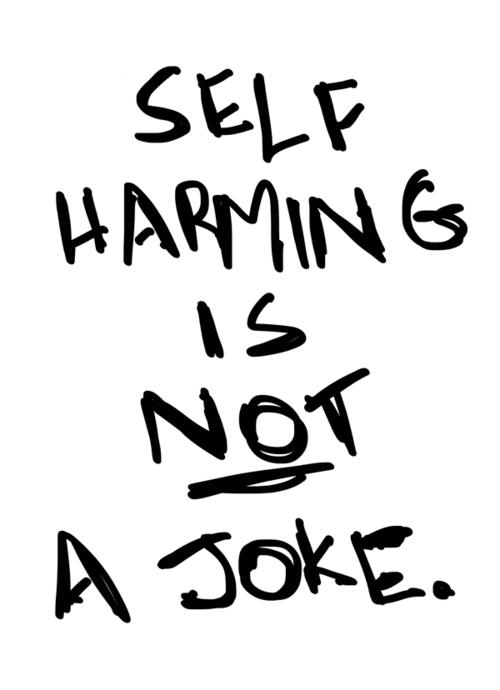 SELF
HARMING
IS
NOT
A JOKE.